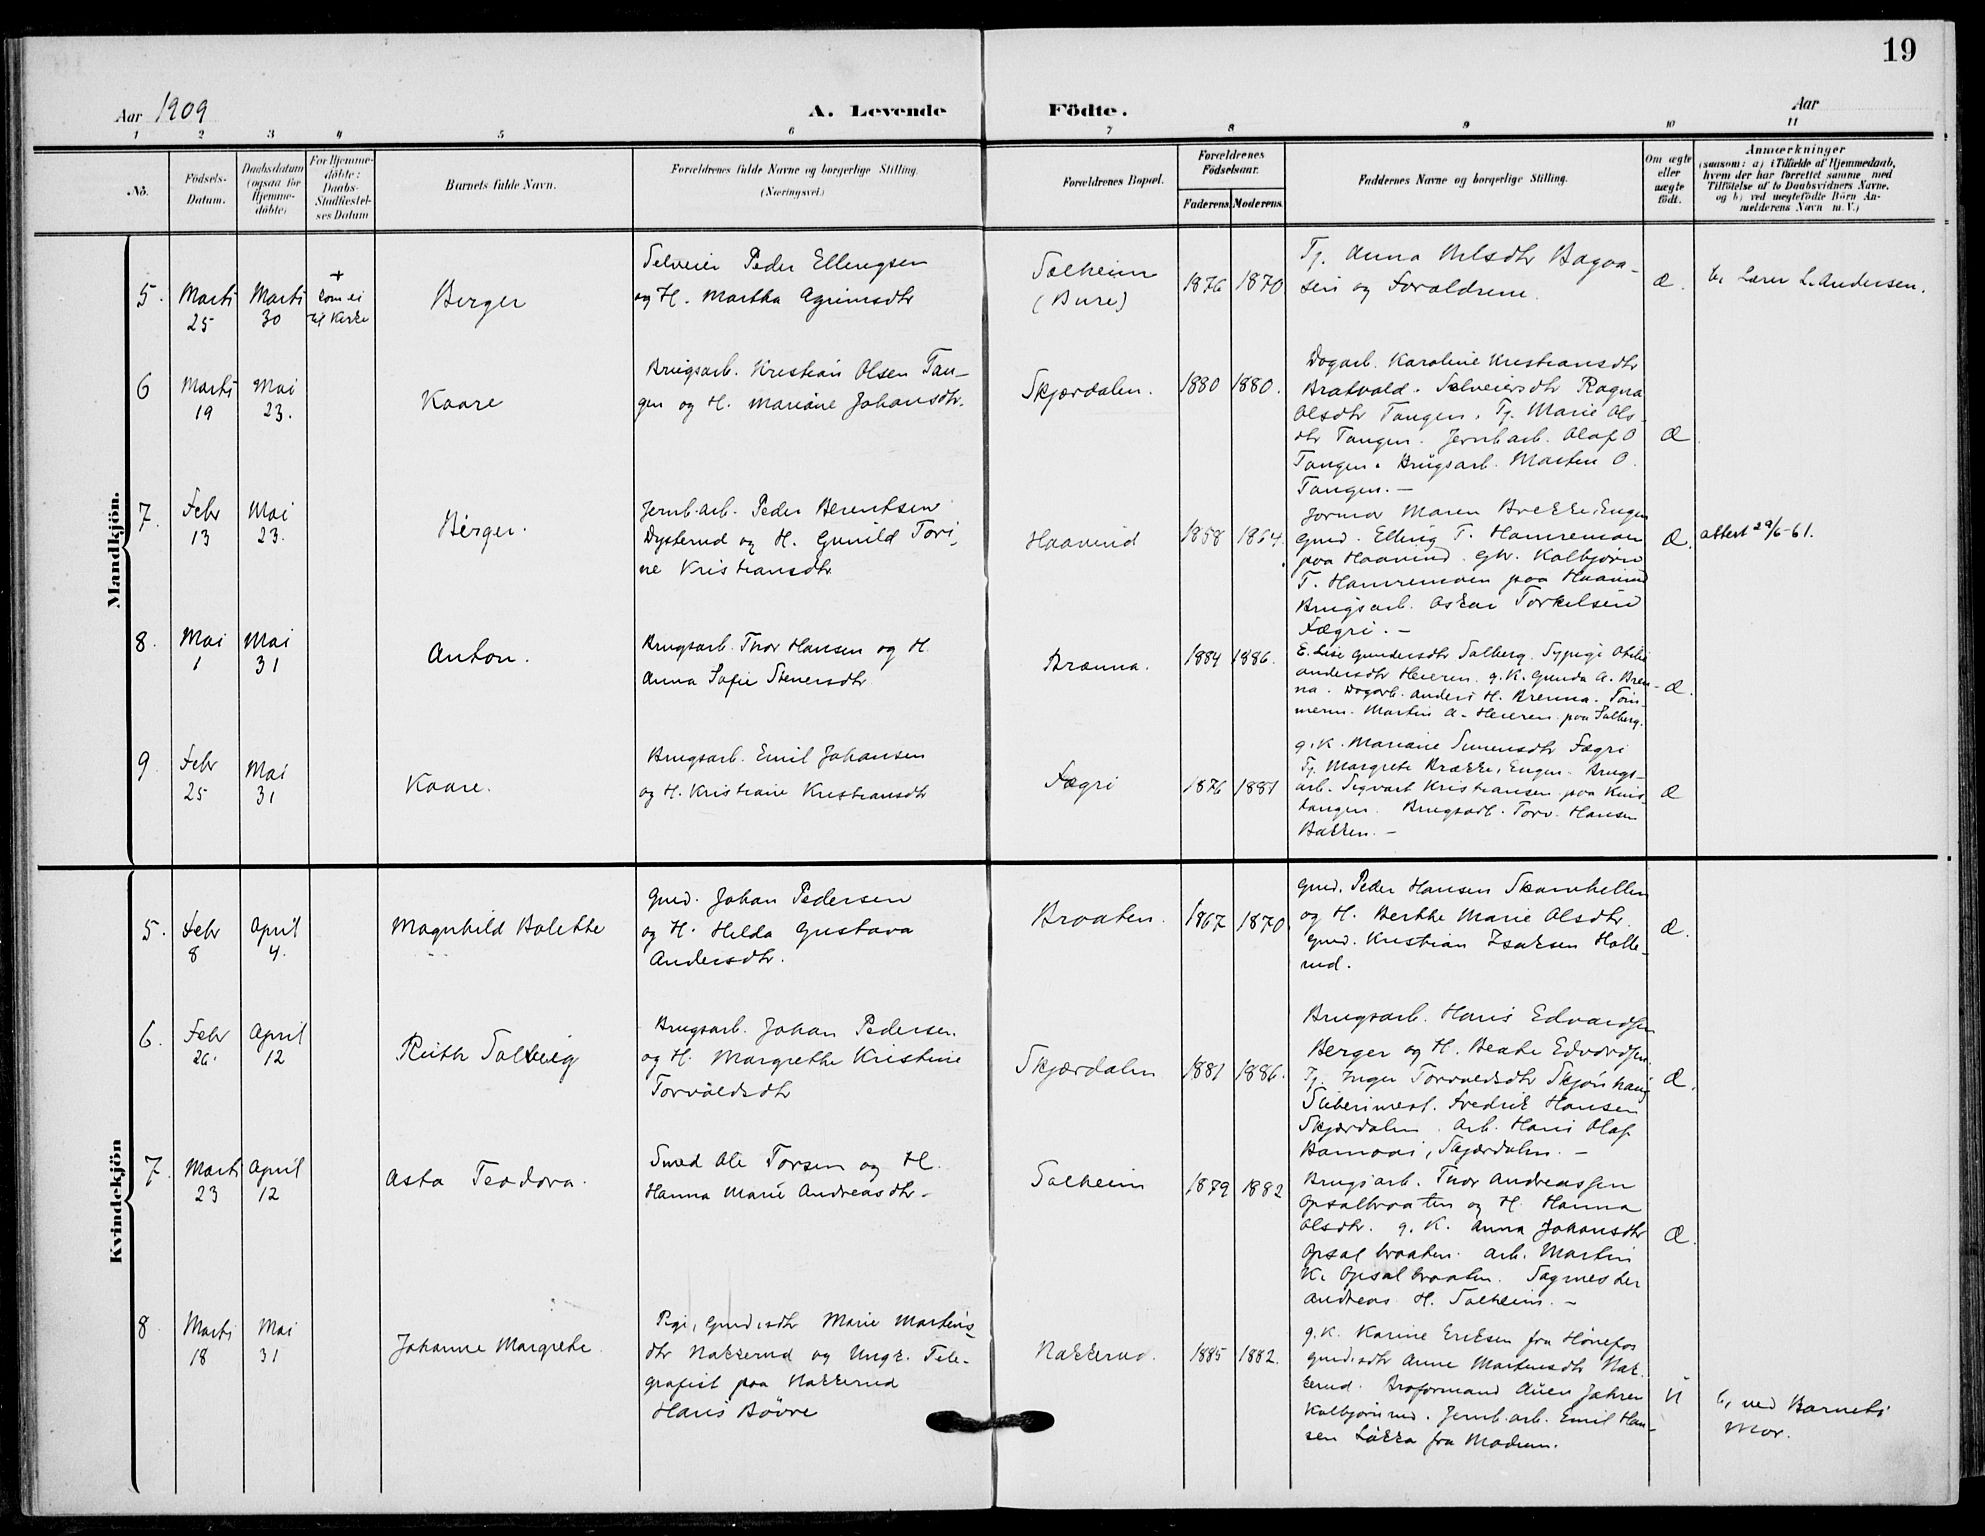 19
Aar 1909
A. Levende Födte.
Aar
1 2 3 4 5 6 7 8 9 10 11
No.
Födsels-
Datum.
Daabsdatum
(ogsaa for
Hjemme-
döbte)
For Hjemme-
döbte:
Daabs-
Stadfæstel-
ses Datum
Barnets fulde Navn.
Forældrenes fulde Navne og borgerlige Stilling.
(Næringsvei.)
Forældrenes Bopæl.
Forældrenes
Födselsaar.
Faderens. Moderens.
Faddernes Navne og borgerlige Stilling.
Om ægte
eller
uægte
födt.
Anmærkninger
(saasom: a) i Tilfælde af Hjemmedaab,
hvem der har forrettet samme med
Tilföielse af to Daabsvidners Navne,
og b) ved uægtefödte Börn An-
melderens Navn m. V.)
Mandkjön.
5. Marts
25
Marts
30
+
kom ei
til Kirke
Berger
Selveier Peder Ellingsen
og H. Martha Agrimsdtr
Solheim
(Bure)
1876 1870
Tj. Anna Nilsdtr Bagaa-
sen og Forældrene.
Æ.
b. Lærer L. Andersen.
6 Marts
19
Mai
23.
Kaare
Brugsarb. Kristian Olsen Tan-
gen og H. Mariane Johansdtr.
Skjærdalen.
1880 1880.
Dagarb. Karoline Kristiansdtr
Bratvald. Selveiersdtr Ragna
Olsdtr Tangen. Tj. Marie Ols-
dtr Tangen. Jernb.arb. Olaf O
Tangen. Brugsarb. Martin O.
Tangen. –
Æ
7. Febr
13
Mai
23.
Birger.
Jernb.arb. Peder Berentsen
Dysterud og H. Gunild Tori-
ne Kristiansdtr
Haavind
1858 1864.
Jormor Maren Brekke, Engen
Gmd. Elling T. Hamremoen
paa Haavind. Gbr. Kolbjörn
T. Hamremoen paa Haavind
Brugsarb. Oskar Torkelsen
Fægri. –
Æ.
attest 29/6-61.
8. Mai
1
Mai
31
Anton.
Brugsarb. Thor Hansen og H.
Anna Sofie Stenersdtr
Brænna.
1884 1886.
E. Lise Gundersdtr Solberg. Sypige Otilie
Andersdtr Heieren. g. K. Gunda A. Bren-
na. Dagarb. Anders H. Brenna. Töm-
merm. Martin A. Heieren paa Solberg.
Æ.
9. Febr
25
Mai
31
Kaare.
Brugsarb. Emil Johansen
og H. Kristiane Kristiansdtr
Fægri
1876 1881
g. K. Mariane Simensdtr Fægri
Tj. Margrete Brække, Engen. Brugs-
arb. Sigvart Kristiansen paa Knis-
tangen. Brugsarb. Torv. Hansen
Bakken. –
Æ
Kvindekjön
5. Febr
8
April
4.
Magnhild Bolette
Gmd. Johan Pedersen
og H. Hilda Gustava
Andersdtr.
Braaten.
1867 1870
Gmd. Peder Hansen Skamhellen
og H. Berthe Marie Olsdtr.
Gmd. Kristian Isaksen Holle-
rud.
Æ.
6. Febr
26.
April
12
Ruth Solveig
Brugsarb. Johan Pedersen.
og H. Margrethe Kristine
Torvaldsdtr
Skjærdalen
1881 1886.
Brugsarb. Hans Edvardsen
Berger og H. Beate Edvardsen.
Tj. Inger Torvaldsdtr Skjönhaug
Sliberimest. Fredrik Hansen
Skjærdalen. Arb. Hans Olaf
Skjærdalen. –
Æ.
7. Marts
23
April
12
Asta Teodora.
Smed Ole Torsen og H.
Hanna Marie Andreasdtr.
Solheim
1879 1882
Brugsarb. Thor Andreassen
Opsalbraaten og H. Hanna
Olsdtr. g. K. Anna Johansdtr
Opsalbraaten. Arb. Martin
K. Opsalbraaten. Sagmester
Andreas H. Solheim. –
Æ.
8 Marts
18
Mai
31
Johanne Margrete.
Pige, Gmd.sdtr Marie Martins-
dtr Nakkerud og Ungk. Tele-
grafist paa Nakkerud
Hans Bövre
Nakkerud.
1885 1882.
g. K. Karine Eriksen fra Hönefos
Gmd.sdtr Anne Martinsdtr Nak-
kerud. Broformand Auen Jahren
Kolbjörnrud. Jernb.arb. Emil Han-
sen Lökka fra Modum.
U
b, ved Barnets
Mor.